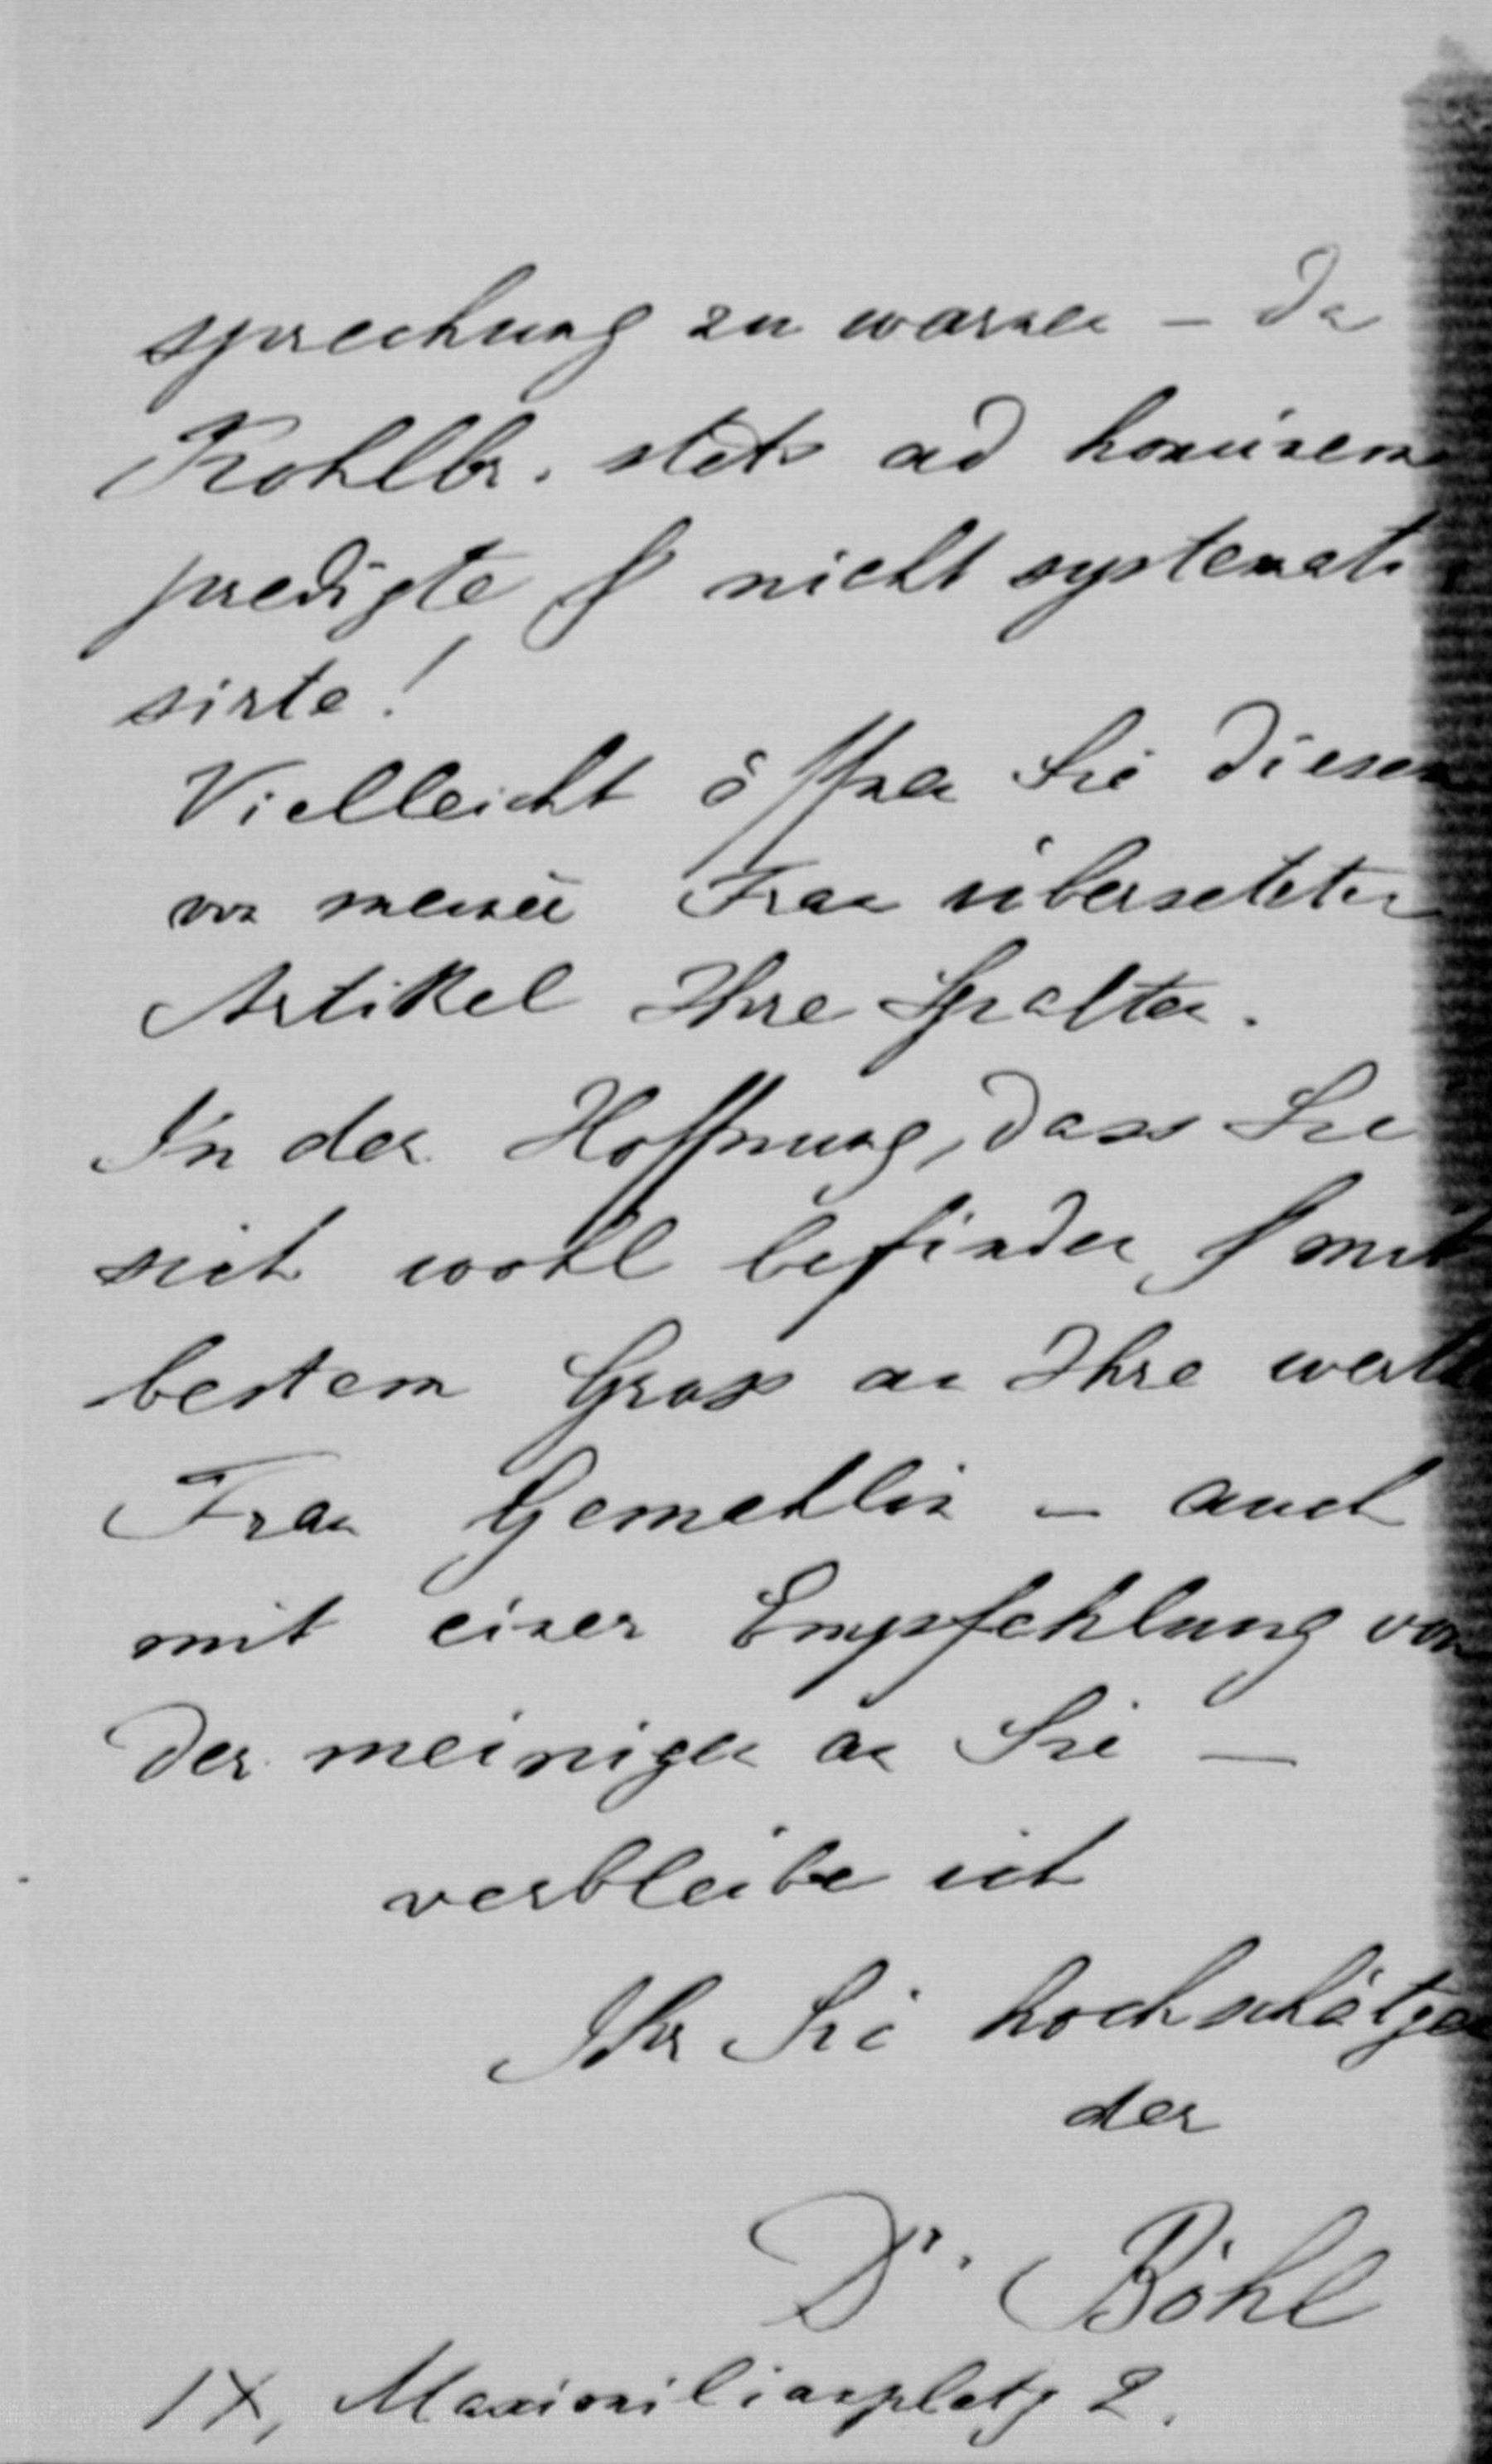 sprechung zu warnen – da
Kohlbr. stets ad hominem
predigte & nicht systemati
sirte!
Vielleicht öffnen Sie diesem
von meiner Frau übersetzten
Artikel Ihre Spalten.
In der Hoffnung, dass Sie
sich wohl befinden & mit
bestem Gruss an Ihre werthe
Frau Gemahlin – auch
mit einer Empfehlung von
der meinigen an Sie —
verbleibe ich
Ihr Sie hochschätzen
der
Dr. Böhl
IX, Maximilianplatz 2.